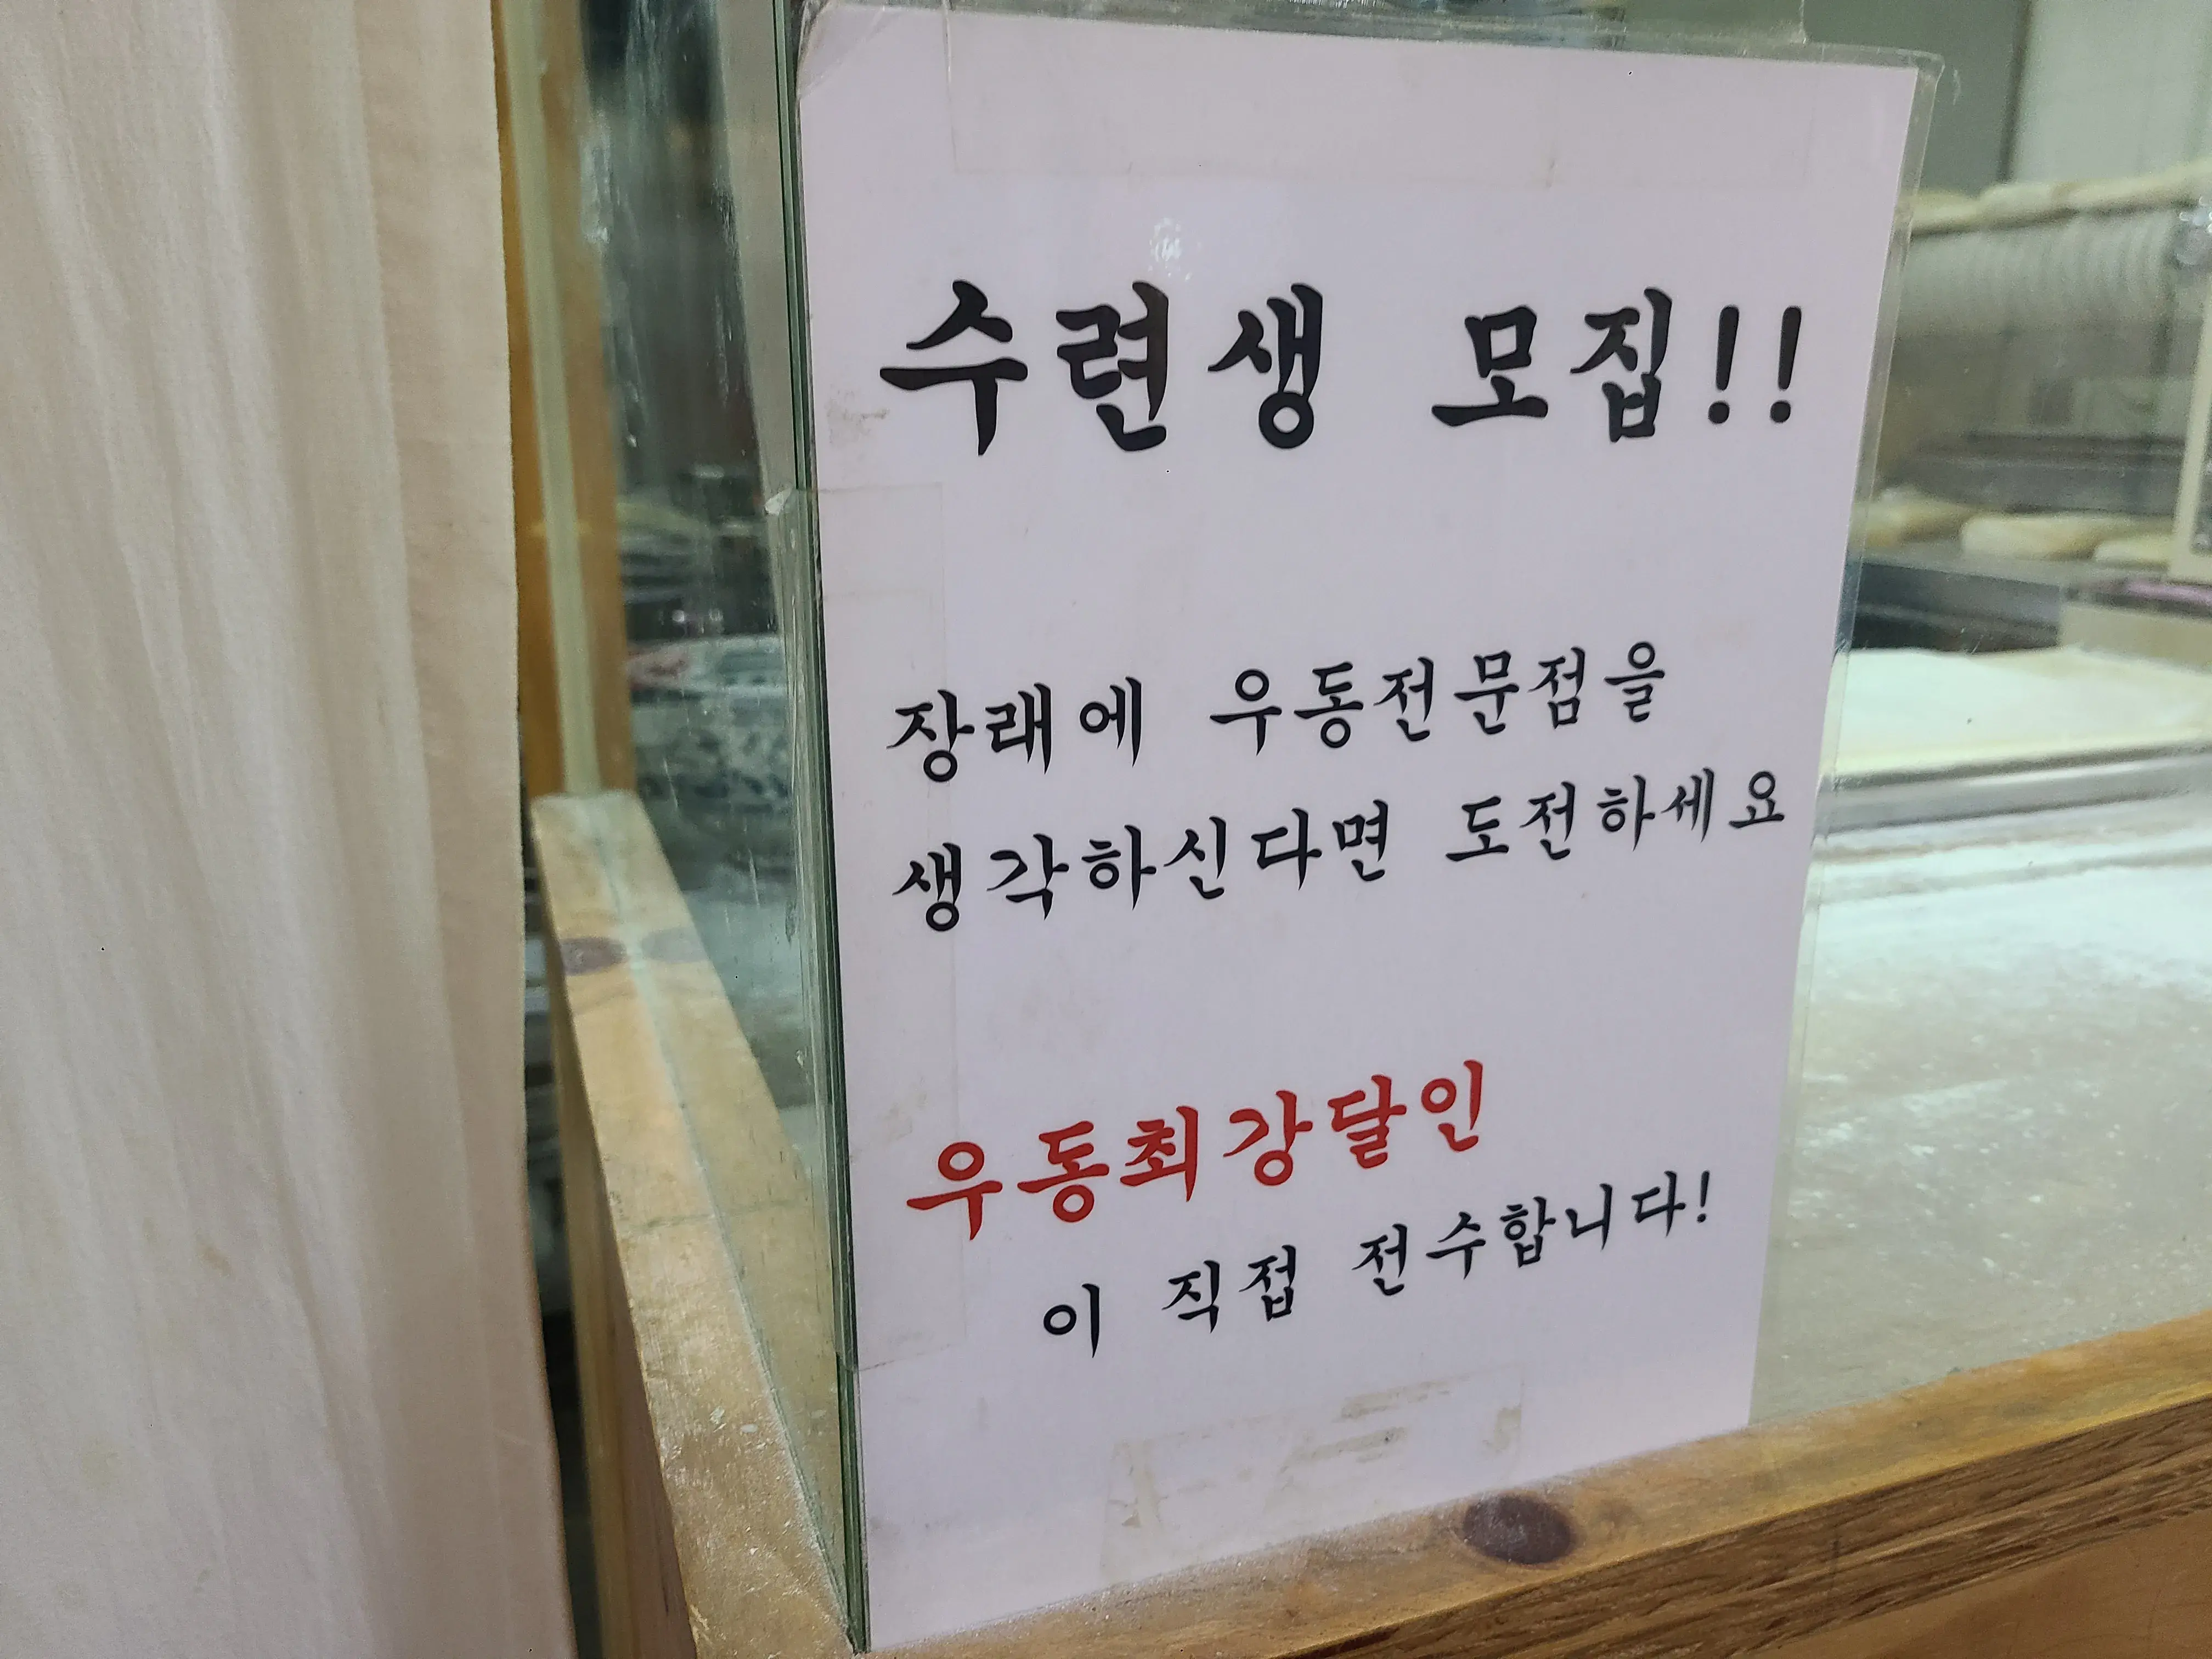 수련생 모집!!
장래에 우동전문점을
생각하신다면 도전하세요
우동최강달인
이 직접 전수합니다!